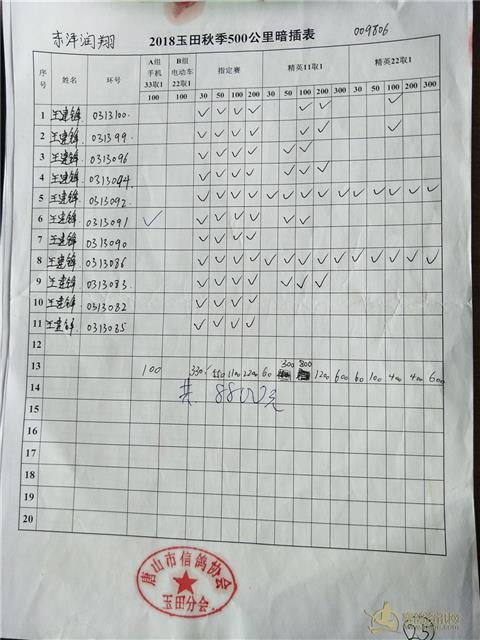 赤洋润翔 2018玉田秋季500公里暗插表 009806
序号 姓名 环号 A组手机33取1 B组电动车22取1 指定赛 精英11取1 精英22取1
100 100 30 50 100 200 30 50 100 200 300 30 50 100 200 300
1 王建锋 0313100 ✓ ✓ ✓ ✓ ✓ ✓ ✓
2 王建锋 031399 ✓ ✓ ✓ ✓ ✓ ✓ ✓
3 王建锋 0313096 ✓ ✓ ✓ ✓ ✓ ✓
4 王建锋 0313094 ✓ ✓ ✓ ✓ ✓ ✓ ✓
5 王建锋 0313092 ✓ ✓ ✓ ✓ ✓ ✓ ✓ ✓ ✓ ✓ ✓ ✓ ✓ ✓
6 王建锋 0313091 ✓ ✓ ✓ ✓ ✓ ✓ ✓
7 王建锋 0313090 ✓ ✓ ✓ ✓
8 王建锋 0313086 ✓ ✓ ✓ ✓ ✓ ✓ ✓ ✓ ✓ ✓ ✓ ✓ ✓ ✓
9 王建锋 0313083 ✓ ✓ ✓ ✓ ✓ ✓ ✓
10 王建锋 0313082 ✓ ✓ ✓ ✓
11 王建锋 0313085 ✓ ✓ ✓ ✓
12
13 100 330 550 1100 2200 60 300 800 1200 600 60 100 400 400 600
14 共 8800元
15
16
17
18
19
20
唐山市信鸽协会
玉田分会